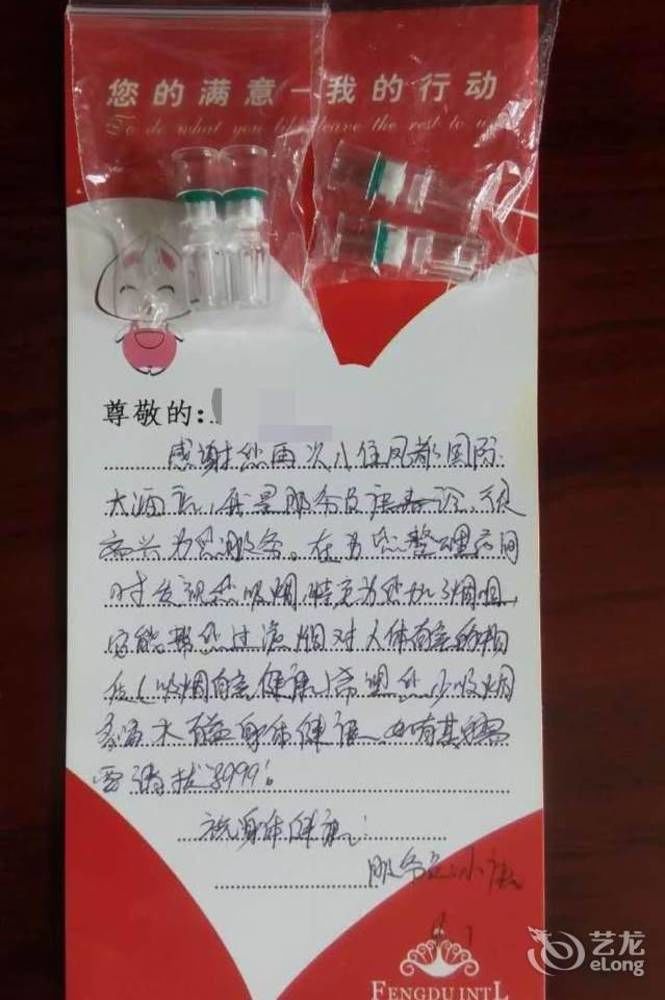 您的满意－我的行动
To do what you like leave the rest to us
尊敬的:
感谢您再次入住凤都国际
大酒店,我是服务员
高兴为您服务。在为您整理房间
时发现您吸烟,特意为您加了烟咀,
它能帮您过滤烟对人体有害的物
质(吸烟有害健康)希望您少吸烟
多喝水有益身体健康。如有其它需
要请拔999!
祝:身体健康!
服务员:小
FENGDU INT'L
艺龙
eLong